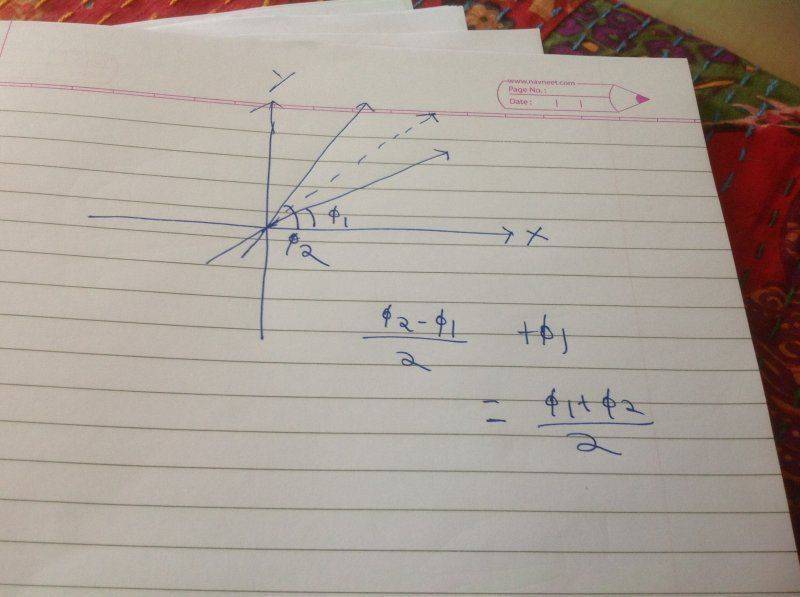 www.navneet.com
Page No.:
Date:
Y
ϕ1
X
ϕ2
ϕ2-ϕ1/2 +ϕ1
= ϕ1+ϕ2/2